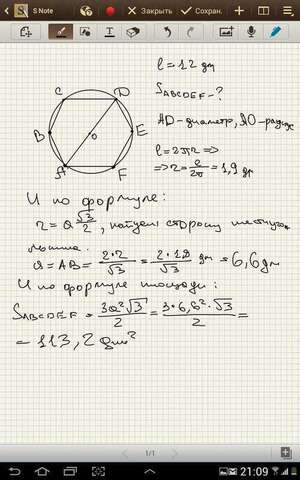 S Note
Закрыть
Сохран.
l = 12 дм
S ABCDEF - ?
AD - диаметр, AO - радиус
l = 2πr ⇒
⇒ r = l/2π = 1,9 дм
C D
B O E
A F
И по формуле:
r = a√3/2, найдем сторону
a = AB = 2·r/√3 = 2·1,9/√3 дм = 6,6 дм
И по формуле площади:
S ABCDEF = 3a²√3/2 = 3·6,6²·√3/2 =
= 113,2 дм²
1/1
21:09